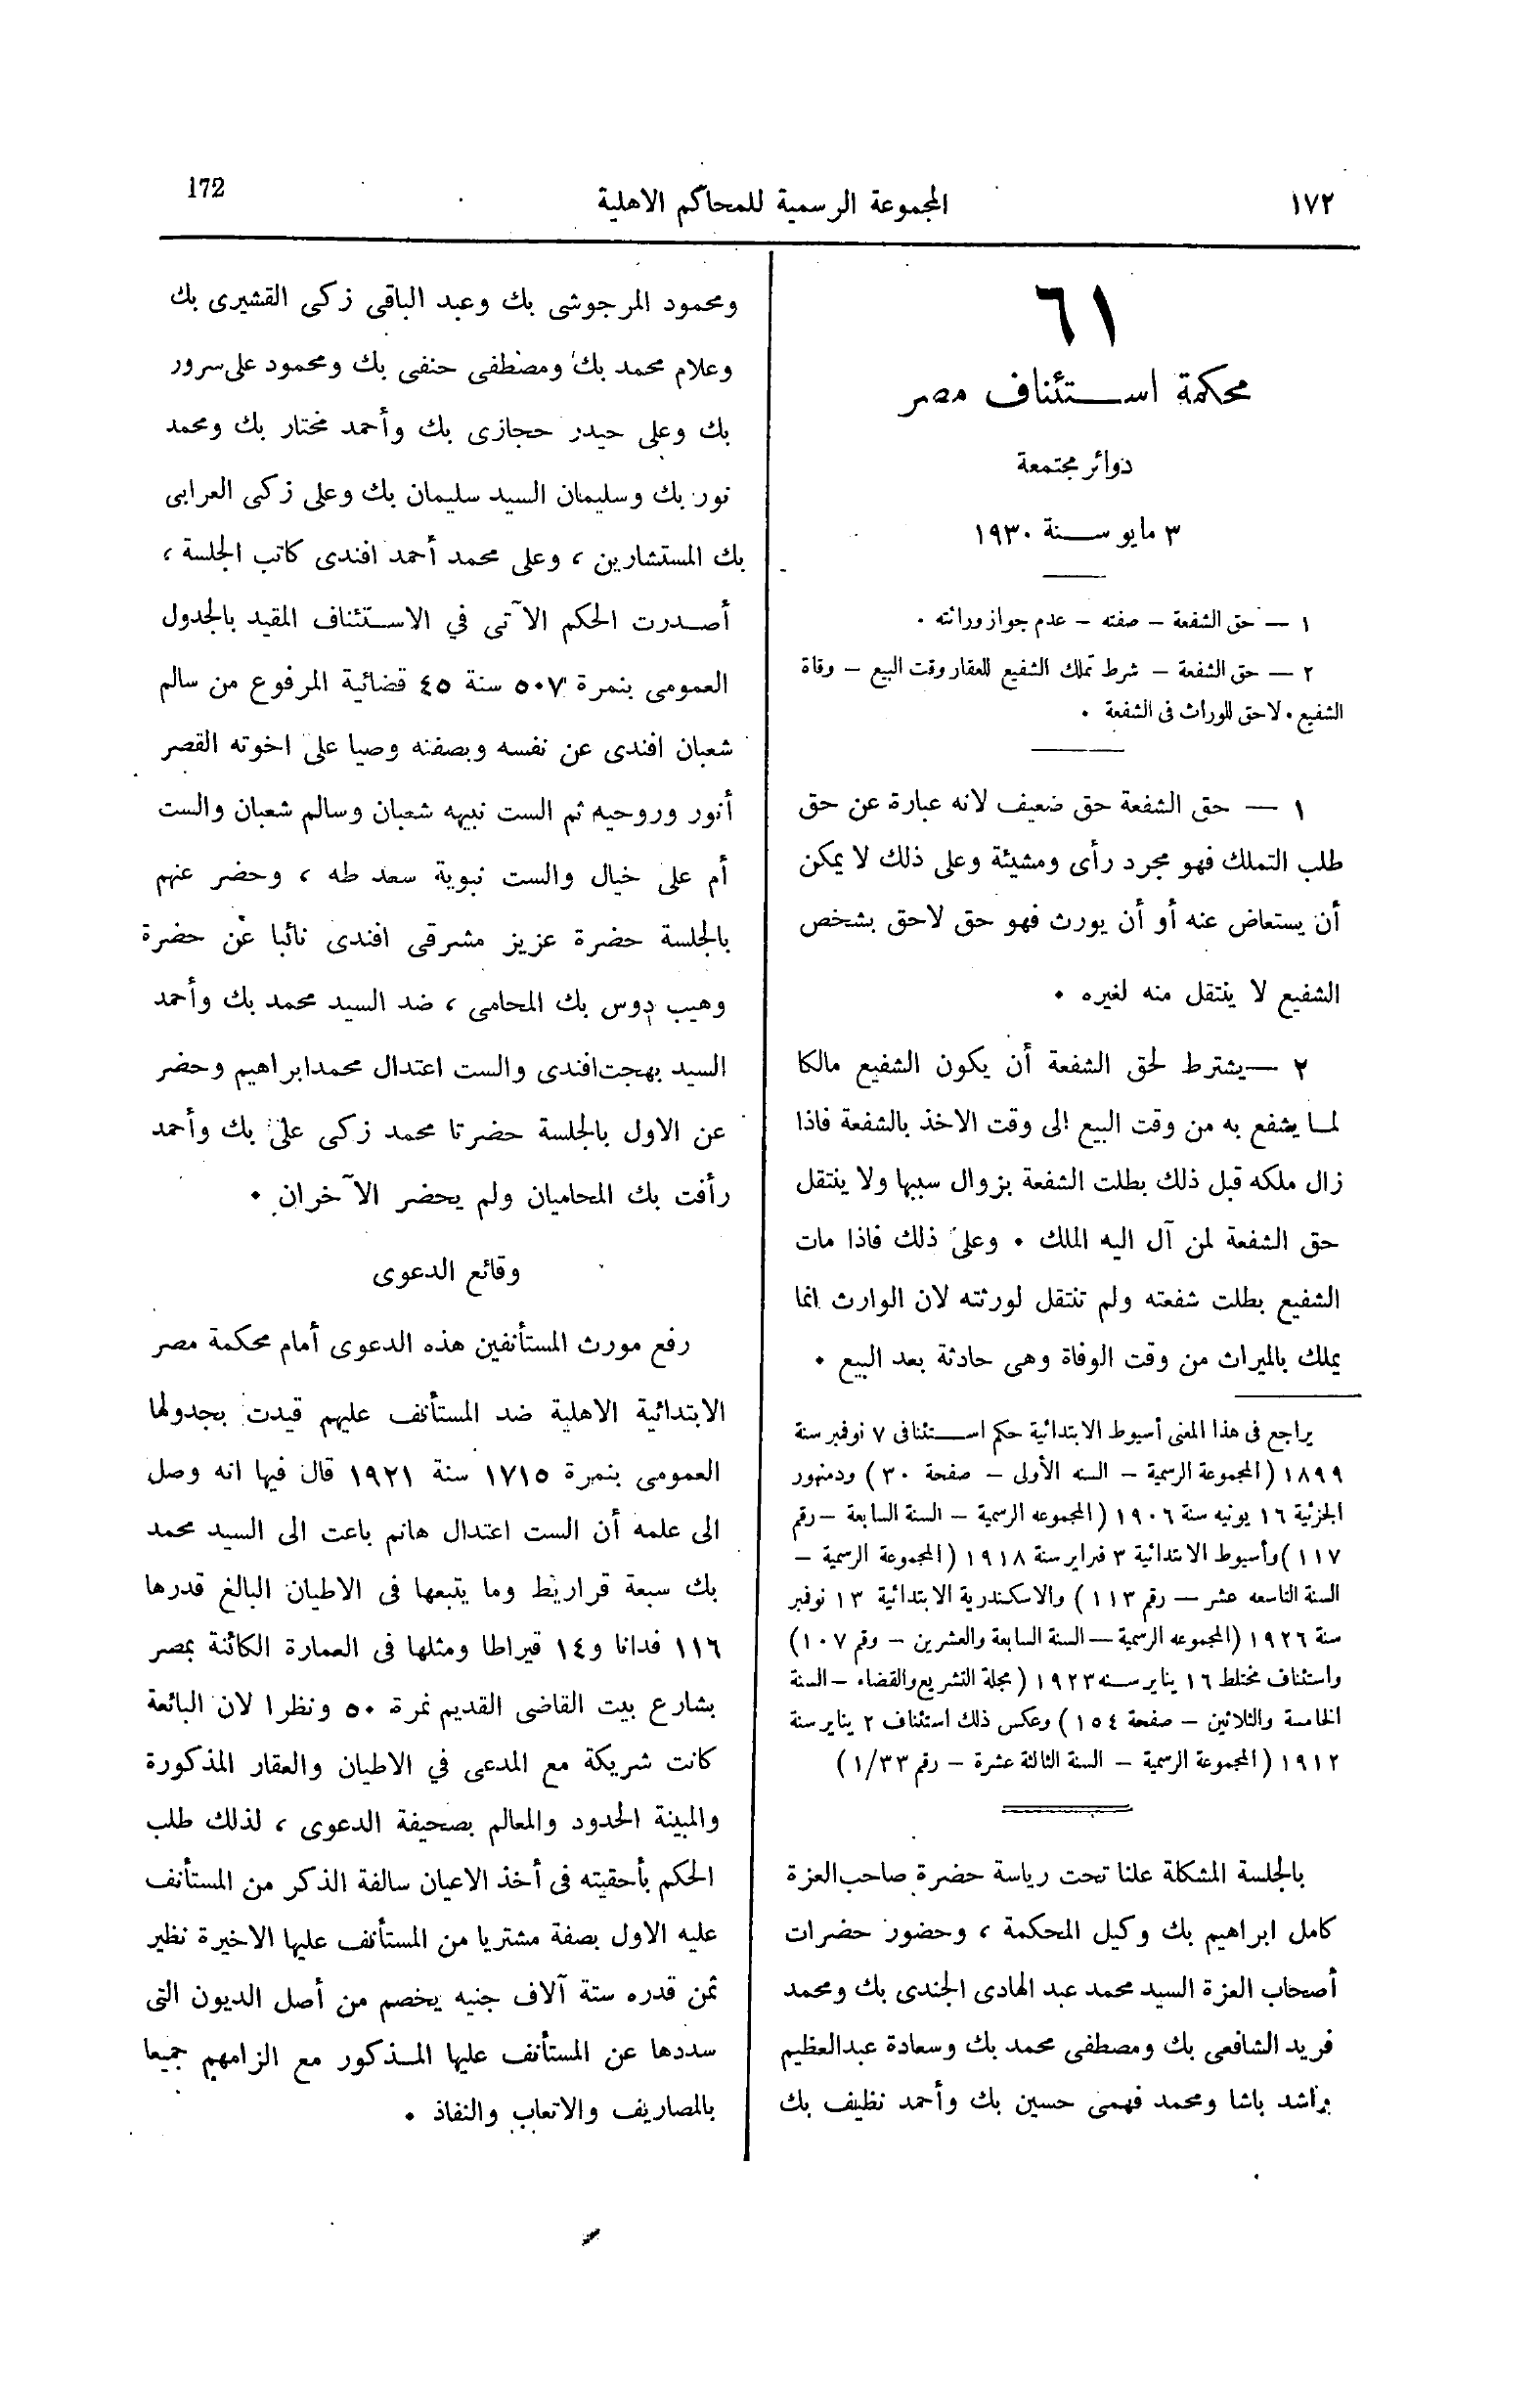 ١٧٢
المجموعة الرسمية للمحاكم الاهلية
172
٦١
محكمة استئناف مصر
دوائر مجتمعة
٣ مايو سنة ١٩٣٠
١ — حق الشفعة – صفته – عدم جواز وراثته .
٢ — حق الشفعة – شرط تملك الشفيع للعقار وقت البيع – وفاة
الشفيع . لا حق للوراث فى الشفعة .
١ — حق الشفعة حق ضعيف لانه عبارة عن حق
طلب التملك فهو مجرد رأى ومشيئة وعلى ذلك لا يمكن
أن يستعاض عنه أو أن يورث فهو حق لاحق بشخص
الشفيع لا ينتقل منه لغيره .
٢ — يشترط لحق الشفعة أن يكون الشفيع مالكا
لما يشفع به من وقت البيع الى وقت الاخذ بالشفعة فاذا
زال ملكه قبل ذلك بطلت الشفعة بزوال سببها ولا ينتقل
حق الشفعة لمن آل اليه الملك . وعلى ذلك فاذا مات
الشفيع بطلت شفعته ولم تنتقل لورثته لان الوارث انما
يملك بالميراث من وقت الوفاة وهى حادثة بعد البيع .
يراجع فى هذا المعنى أسيوط الابتدائية حكم استئنافى ٧ نوفمبر سنة
١٨٩٩ (المجموعة الرسمية – السنه الأولى – صفحة ٣٠) ودمنهور
الجزئية ١٦ يونيه سنة ١٩٠٦ (المجموعه الرسمية – السنة السابعة – رقم
١١٧) وأسيوط الابتدائية ٣ فبراير سنة ١٩١٨ (المجموعة الرسمية –
السنة التاسعه عشر — رقم ١١٣) والاسكندرية الابتدائية ١٣ نوفمبر
سنة ١٩٢٦ (المجموعه الرسمية — السنة السابعة والعشرين – رقم ١٠٧)
واستئناف مختلط ١٦ يناير سنه ١٩٢٣ (مجلة التشريع والقضاء – السنة
الخامسة والثلاثين – صفحة ١٥٤) وعكس ذلك استئناف ٢ يناير سنة
١٩١٢ (المجموعة الرسمية – السنة الثالثة عشرة – رقم ١/٣٣)
بالجلسة المشكلة علنا تحت رياسة حضرة صاحب العزة
كامل ابراهيم بك وكيل المحكمة ، وحضور حضرات
أصحاب العزة السيد محمد عبد الهادى الجندى بك ومحمد
فريد الشافعى بك ومصطفى محمد بك وسعادة عبدالعظيم
راشد باشا ومحمد فهمى حسين بك وأحمد نظيف بك
ومحمود المرجوشى بك وعبد الباقى زكى القشيرى بك
وعلام محمد بك ومصطفى حنفى بك ومحمود على سرور
بك وعلى حيدر حجازى بك وأحمد مختار بك ومحمد
نور بك وسليمان السيد سليمان بك وعلى زكى العرابى
بك المستشارين ، وعلى محمد أحمد افندى كاتب الجلسة ،
أصدرت الحكم الآتى في الاستئناف المقيد بالجدول
العمومى بنمرة ٥٠٧ سنة ٤٥ قضائية المرفوع من سالم
شعبان افندى عن نفسه وبصفته وصيا على اخوته القصر
أنور وروحيه ثم الست نبيهه شعبان وسالم شعبان والست
أم على خيال والست نبوية سعد طه ، وحضر عنهم
بالجلسة حضرة عزيز مشرقى افندى نائبا عن حضرة
وهيب دوس بك المحامى ، ضد السيد محمد بك وأحمد
السيد بهجت افندى والست اعتدال محمد ابراهيم وحضر
عن الاول بالجلسة حضرتا محمد زكى على بك وأحمد
رأفت بك المحاميان ولم يحضر الآخران .
وقائع الدعوى
رفع مورث المستأنفين هذه الدعوى أمام محكمة مصر
الابتدائية الاهلية ضد المستأنف عليهم قيدت بجدولها
العمومى بنمرة ١٧١٥ سنة ١٩٢١ قال فيها انه وصل
الى علمه أن الست اعتدال هانم باعت الى السيد محمد
بك سبعة قراريط وما يتبعها فى الاطيان البالغ قدرها
١١٦ فدانا و١٤ قيراطا ومثلها فى العمارة الكائنة بمصر
بشارع بيت القاضى القديم نمرة ٥٠ ونظرا لان البائعة
كانت شريكة مع المدعى في الاطيان والعقار المذكورة
والمبينة الحدود والمعالم بصحيفة الدعوى ، لذلك طلب
الحكم بأحقيته فى أخذ الاعيان سالفة الذكر من المستأنف
عليه الاول بصفة مشتريا من المستأنف عليها الاخيرة نظير
ثمن قدره ستة آلاف جنيه يخصم من أصل الديون التى
سددها عن المستأنف عليها المذكور مع الزامهم جميعا
بالمصاريف والاتعاب والنفاذ .